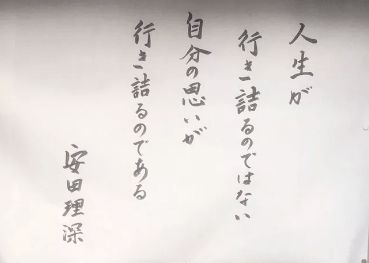 人生が
行き詰るのではない
自分の思いが
行き詰るのである
安田理深